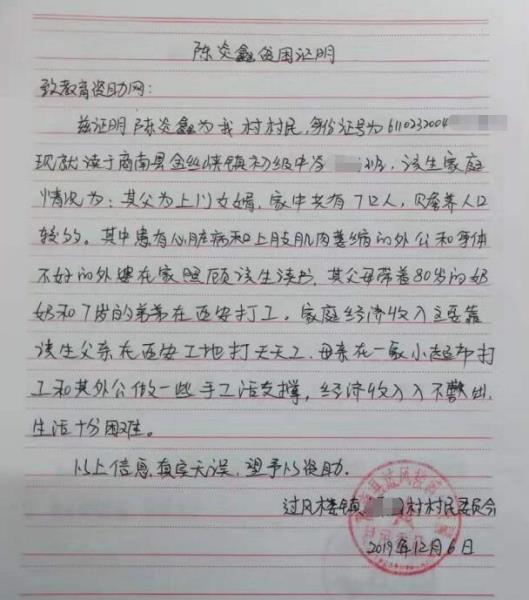 陈炎鑫贫困证明
致教育资助网：
兹证明陈炎鑫为我村村民，身份证号为6110232004
现就读于商南县金丝峡镇初级中学 班，该生家庭
情况为：其父为上门女婿，家中共有7口人，赡养人口
较多。其中患有心脏病和上肢肌肉萎缩的外公和身体
不好的外婆在家照顾该生读书，其父母带着80岁的奶
奶和7岁的弟弟在西安打工，家庭经济收入主要靠
该生父亲在西安工地打天天工，母亲在一家小超市打
工和其外公做一些手工活支撑，经济收入入不敷出，
生活十分困难。
以上信息真实无误，望予以资助。
过风楼镇 村村民委员会
2019年12月6日